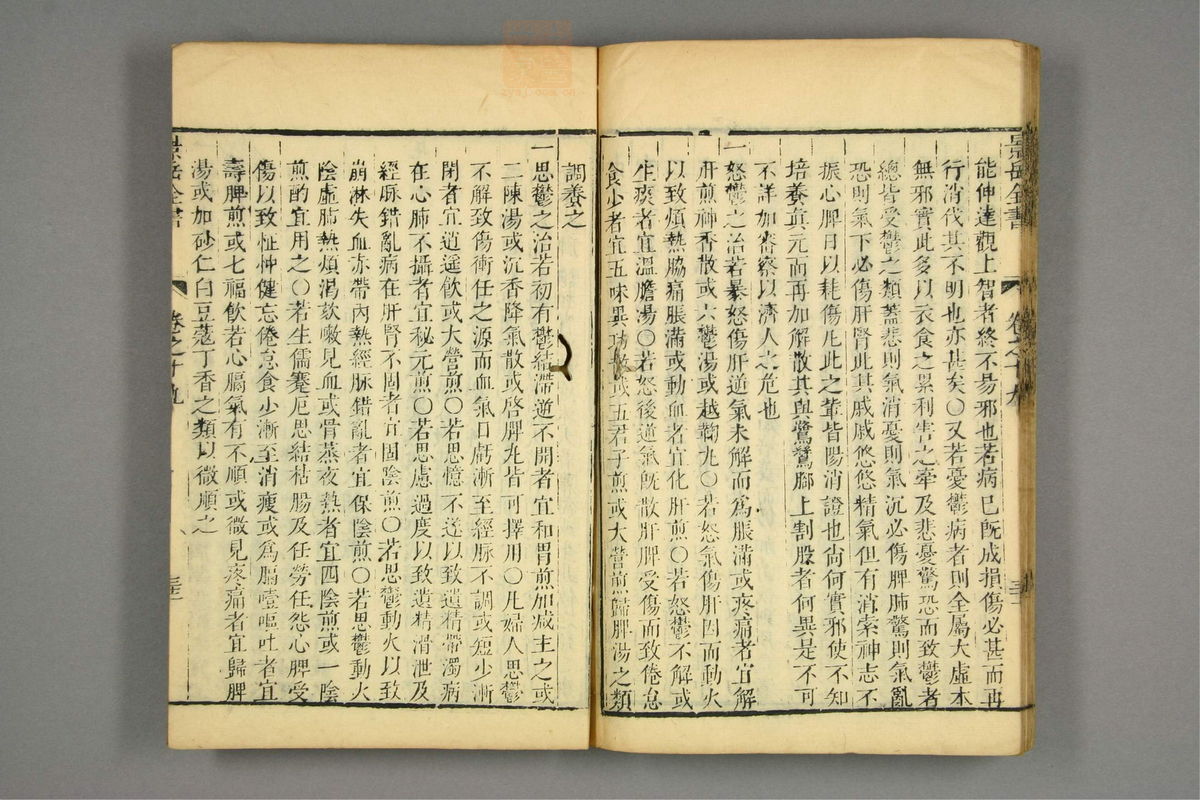 景岳全書
卷之十九
能伸達觀上智者終不昜邪也若病已旣成損傷必甚而再
行消伐其不明也亦甚矣〇又若憂鬱病者則全屬大虛本
無邪實此多以衣食之累利害之牽及悲憂驚恐而致鬱者
總皆受鬱之類蓋悲則氣消憂則氣沉必傷脾肺驚則氣亂
恐則氣下必傷肝腎此其戚戚悠悠精氣但有消索神志不
振心脾日以耗傷凡此之輩皆陽消證也尚何實邪使不知
培養真元而再加解散其與鷺鷥脚上割股者何異是不可
不詳加審察以濟人之危也
一怒鬱之治若暴怒傷肝逆氣未解而爲脹滿或疼痛者宜解
肝煎神香散或六鬱湯或越鞠丸〇若怒氣傷肝因而動火
以致煩熱脇痛脹滿或動血者宜化肝煎〇若怒鬱不解或
生痰者宜溫膽湯〇若怒後逆氣旣散肝脾受傷而致倦怠
食少者宜五味異功散或五君子煎或大營煎歸脾湯之類
調養之
一思鬱之治若初有鬱結滯逆不開者宜和胃煎加减主之或
二陳湯或沉香降氣散或啓脾丸皆可擇用〇凡婦人思鬱
不解致傷衝任之源而血氣日虧漸至經脈不調或短少漸
閉者宜逍遥飲或大營煎〇若思憶不遂以致遺精帶濁病
在心肺不攝者宜秘元煎〇若思慮過度以致遺精滑泄及
經脈錯亂病在肝腎不固者宜固陰煎〇若思鬱動火以致
崩淋失血赤帶內熱經脈錯亂者宜保陰煎〇若思鬱動火
陰虛肺熱煩渴欬嗽見血或骨蒸夜熱者宜四陰煎或一陰
煎酌宜用之〇若生儒蹇厄思結枯腸及任勞任怨心脾受
傷以致怔忡健忘倦怠食少漸至消瘦或爲膈噎嘔吐者宜
壽脾煎或七福飲若心膈氣有不順或微見疼痛者宜歸脾
湯或加砂仁白豆蔻丁香之類以微順之
景岳全書
卷之十九